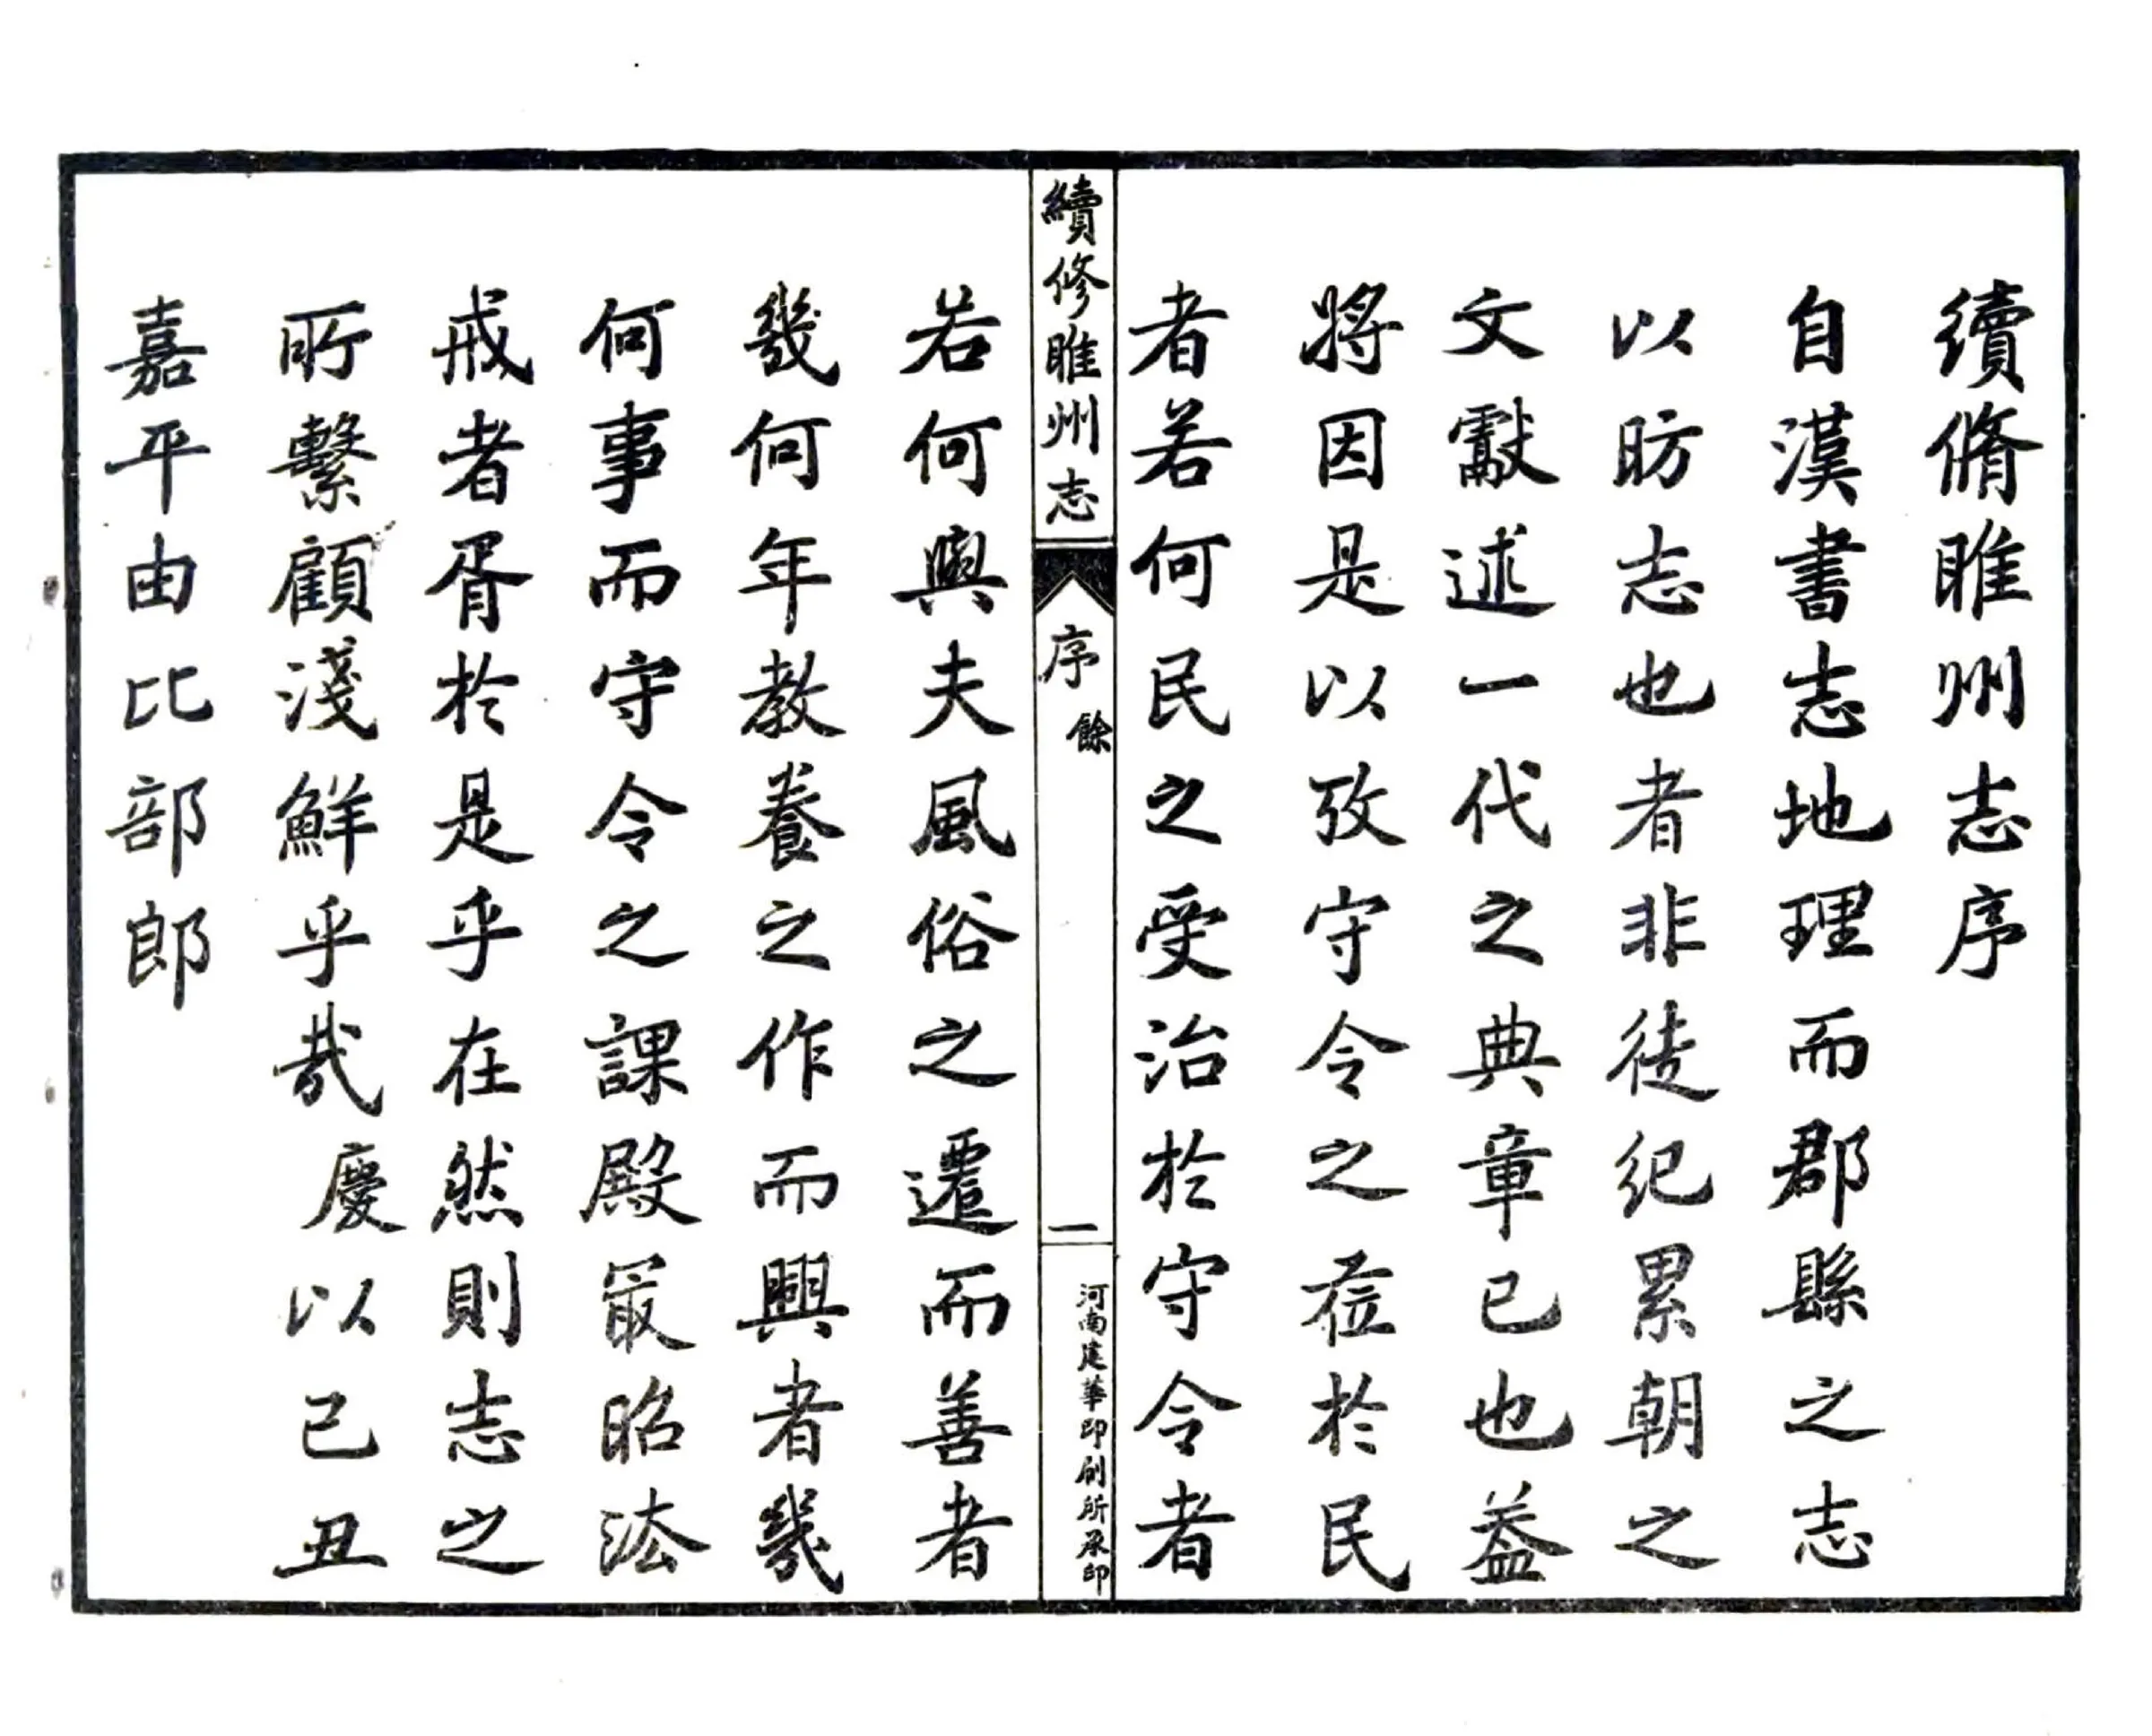 續脩睢州志序
自漢書志地理而郡縣之志
以昉志也者非徒紀累朝之
文獻述一代之典章已也葢
將因是以攷守令之莅於民
者若何民之受治於守令者
續修睢州志
序
餘
一
河南建華印刷所承印
若何與夫風俗之遷而善者
幾何年教養之作而興者幾
何事而守令之課殿最昭法
戒者胥於是乎在然則志之
所繫顧淺鮮乎哉慶以己丑
嘉平由比部郎